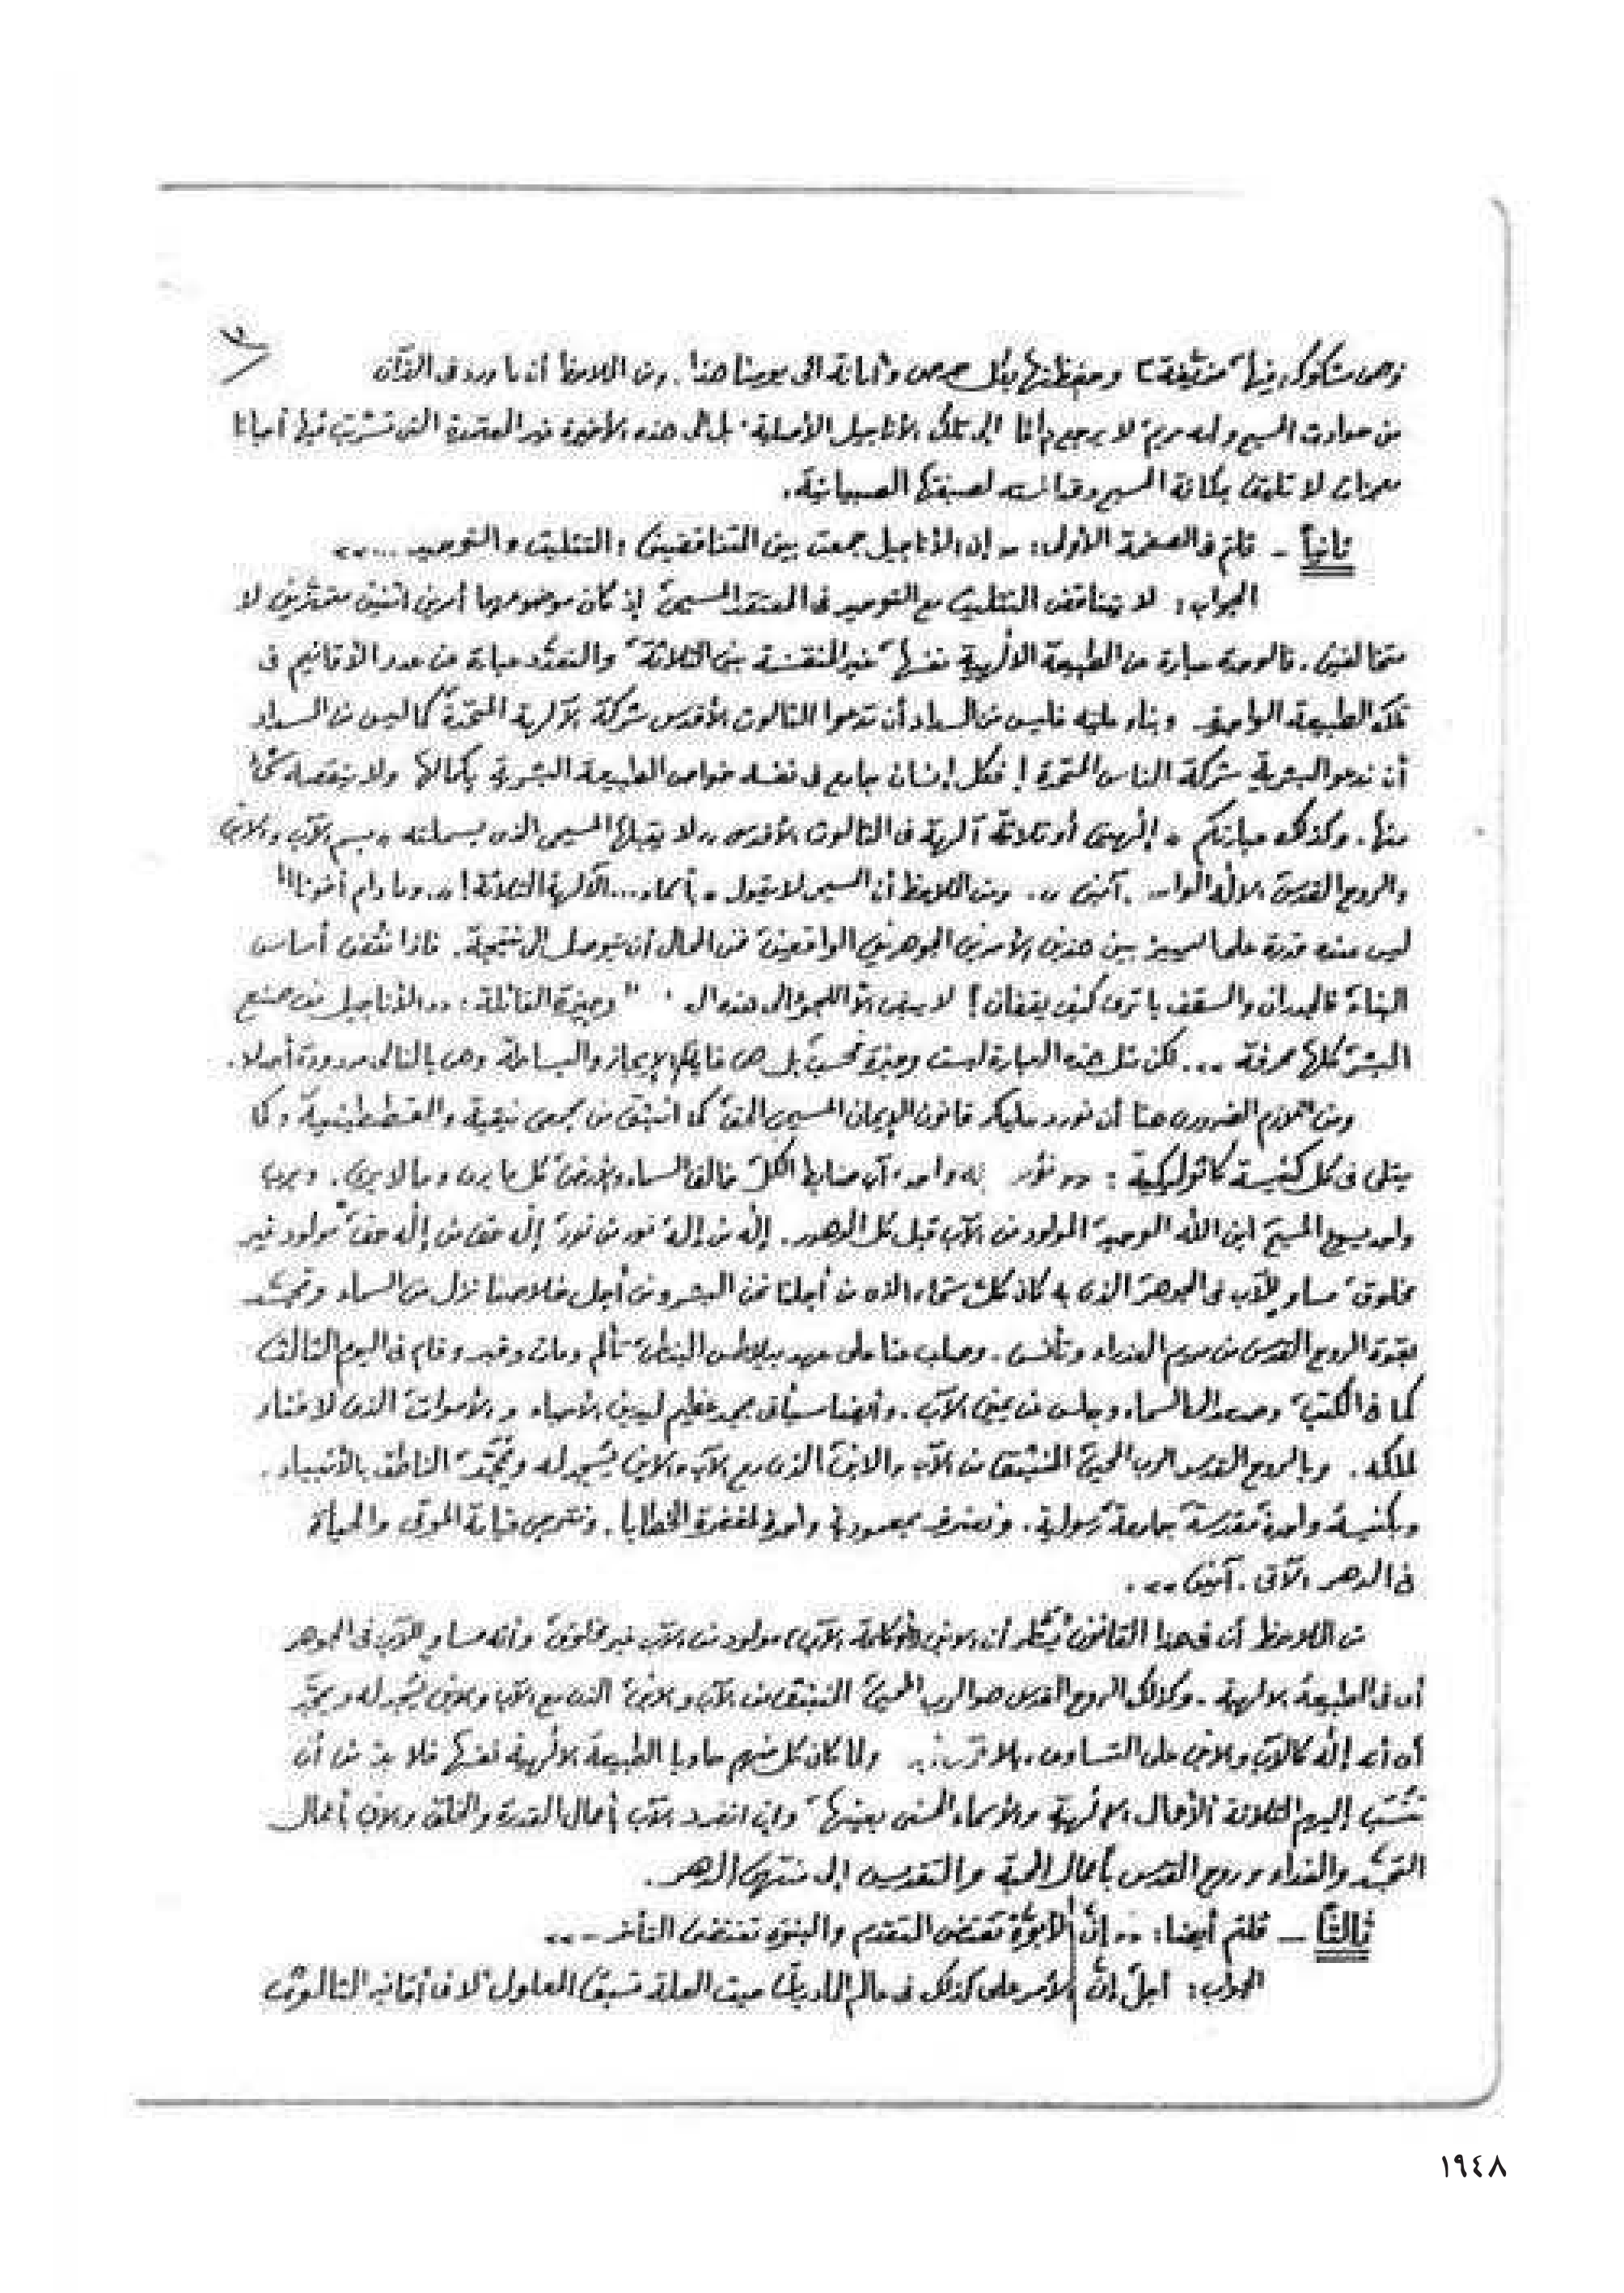 وهي مشكوك فيها " مزيّفة " وحفظتها بكل حرص وأمانة الى يومنا هذا. ومن الملاحظ أن ما ورد في القرآن
من حوادث المسيح وأمه مريم لا يرجع دائما الى تلك الأناجيل الأصلية، بل الى هذه الأخيرة غير المعتمدة التي تسرّبت فيها أحيانا
معجزات لا تليق بكانة المسيح وقداسته لصبغتها الصبيانية.
ثانياً - قلتم في الصفحة الأولى: « إن الأناجيل جمعت بين المتناقضين: التثليث والتوحيد ... »
الجواب: لا يتناقض التثليث مع التوحيد في المعتقد المسيحي إذ كان موضوعهما أمرين اثنين متميّزين لا
متخالفين. فالوحدة عبارة عن الطبيعة الالهية نفسها، غير المنقسمة بين الثلاثة، والتعدّد عبارة عن عدد الأقانيم في
تلك الطبيعة الواحدة. وبناء عليه فليس من السداد أن تدعوا الثالوث الأقدس شركة الآلهة المتحدة كما ليس من السداد
أن ندعو البشرية شركة الناس المتحدة! فكل إنسان جامع في نفسه خواص الطبيعة البشرية بكمالها ولا ينقصه شيء
منها. وكذلك عبارتكم « إلهين أو ثلاثة آلهة في الثالوث الأقدس » لا يقبلها المسيحي الذي بسملته « بسم الآب والابن
والروح القدس الإله الواحد. آمين ». ومن الملاحظ أن المسيحي لا يقول « بأسماء... الآلهة الثلاثة! ». وما دام أخونا
ليس عنده قدرة على التمييز بين هذين الأمرين الجوهريين الواقعين، فمن المحال أن يتوصل الى نتيجة. فاذا نُقض أساس
البناء، فالجدران والسقف يا ترى كيف يقفان؟ لا يبقى إلا اللجوء الى هذه ال وجيزة القائلة: « الأناجيل من صنع
البشر كلها محرفة ... لكن مثل هذه العبارة ليست وجيزة فحسب، بل هي غاية الإيجاز والبساطة وهي بالتالي مردودة أصلا.
ومن اللازم الضروري هنا أن نورد عليكم قانون الإيمان المسيحي الحق كما انبثق من مجمعي نيقية والقسطنطينية، وكما
يتلى في كل كنيسة كاثوليكية: « نؤمن بإله واحد، آب ضابط الكل، خالق السماء والأرض، كل ما يرى وما لا يرى. وبرب
واحد يسوع المسيح ابن الله الوحيد، المولود من الآب قبل كل الدهور. إله من إله، نور من نور، إله حق من إله حق، مولود غير
مخلوق، مساو للآب في الجوهر، الذي به كان كل شيء، الذي من أجلنا نحن البشر ومن أجل خلاصنا نزل من السماء وتجسّد
بقوة الروح القدس من مريم العذراء وتأنس. وصلب عنا على عهد بيلاطس البنطي، تألم ومات وقبر وقام في اليوم الثالث
كما في الكتب، وصعد الى السماء وجلس عن يمين الآب. وأيضا سيأتي بمجد عظيم ليدين الأحياء والأموات، الذي لا فناء
لملكه. وبالروح القدس الرب المحيي، المنبثق من الآب والابن، الذي مع الآب والابن يُسجد له ويُمجّد، الناطق بالأنبياء.
وبكنيسة واحدة مقدسة جامعة رسولية. ونعترف بمعمودية واحدة لمغفرة الخطايا. ونترجى قيامة الموتى والحياة
في الدهر الآتي. آمين ».
من الملاحظ أن في هذا القانون يُذكر أن الابن (أو كلمة الآب) مولود من الآب غير مخلوق، وأنه مساو للآب في الجوهر
أي في الطبيعة الالهية. وكذلك الروح القدس هو الرب المحيي، المنبثق من الآب والابن، الذي مع الآب والابن يُسجد له ويمجّد
أي أنه إله كالآب والابن على التساوي، بلا ولما كان كل منهم حاويا الطبيعة الالهية نفسها فلا بد من أن
تُنسَب إليهم الثلاثة الأعمال الالهية والأسماء الحسنى بعينها، وإن انفرد الآب بأعمال القدرة والخلق والابن بأعمال
التجسّد والفداء وروح القدس بأعمال المحبة والتقديس إلى منتهى الدهر.
ثالثاً - قلتم أيضا: « إنّ الأبوّة تقتضي التقدم والبنوة تقتضي التأخر - »
الجواب: أجل إنّ الأمر على كذلك في عالم الماديات حيث العلة تسبق المعلول، لا في أقانيم الثالوث
١٩٤٨